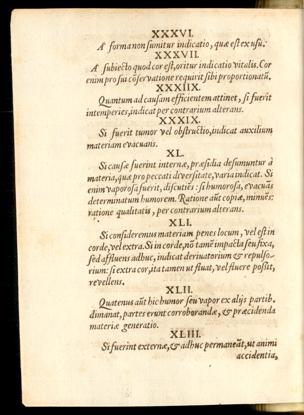 XXXVI.
A' forma non sumitur indicatio, quæ est ex usu.
XXXVII.
A' subiecto quod cor est, oritur indicatio vitalis. Cor
enim pro sui cõseruatione requirit sibi proportionatũ.
XXXIIX.
Quantum ad causam efficientem attinet, si fuerit
intemperies, indicat per contrarium alterans.
XXXIX.
Si fuerit tumor vel obstructio, indicat auxilium
materiam evacuans.
XL.
Si causæ fuerint internæ, præsidia desumuntur à
materia, quæ pro peccati diversitate, varia indicat. Si
enim vaporosa fuerit, discutiẽs: si humorosa, evacuãs
determinatum humorem. Ratione aũt copiæ, minuẽs:
ratione qualitatis, per contrarium alterans.
XLI.
Si consideremus materiam penes locum, vel est in
corde, vel extra. Si in corde, nõ tamẽ impacta seu fixa,
sed affluens adhuc, indicat derivatorium & repulso-
rium: si extra cor, ita tamen ut fluat, vel fluere possit,
revellens.
XLII.
Quatenus aũt hic humor seu vapor ex alijs partib.
dimanat, partes erunt corroborandæ, & præcidenda
materiæ generatio.
XLIII.
Si fuerint externæ, & adhuc permaneãt, ut animi
accidentia,